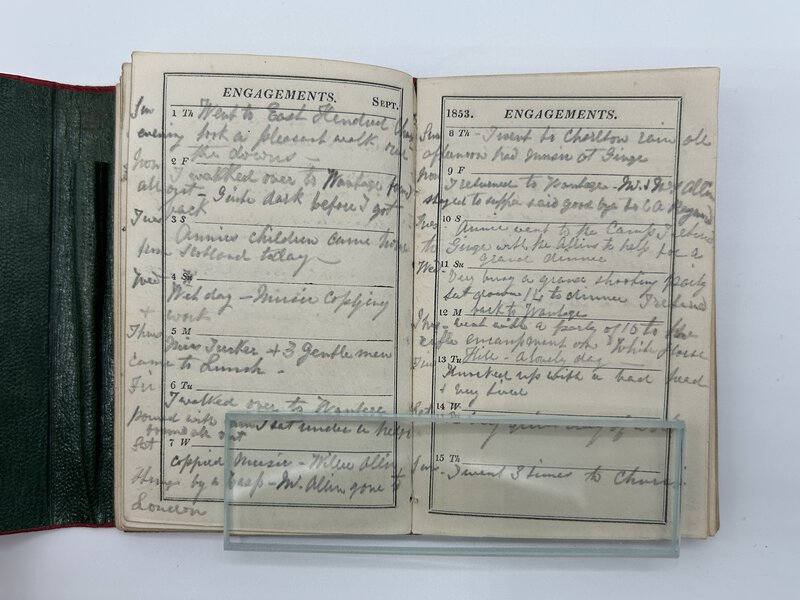 ENGAGEMENTS. SEPT.
Sun 1 Th Went to East Hendred
evening took a pleasant walk over
Mon the downs -
2 F
I walked over to Wantage found
all out - Quite dark before I got
Tues back
3 S
Annies children came home
from Scotland today -
Wed 4 Su
Wet day - Music copying
& work
Thurs 5 M
Miss Tucker & 3 Gentlemen
came to Lunch -
Fri
6 Tu
I walked over to Wantage
found all out
Sat 7 W
copied Music - Willie Allin
Stung by a Wasp - Mr. Allin gone to
London
1853. ENGAGEMENTS.
Sun 8 Th - I went to Charlton rain all
afternoon had music at Ginge
Mon 9 F
I returned to Wantage - Mr. & Mrs Allin
stayed to supper said good bye to
Tues 10 S
Annie went to the Camp I returned
to Ginge with the Allins to help for a
grand dinner
Wed 11 Su
Very busy a grand shooting party
sat down 14 to dinner I returned
12 M back to Wantage
Thurs - went with a party of 15 to the
rifle encampment on White Horse
13 Tu Hill - a lovely day
Knocked up with a bad head
& very tired
14 W
15 Th
Sun - I went 3 times to Church